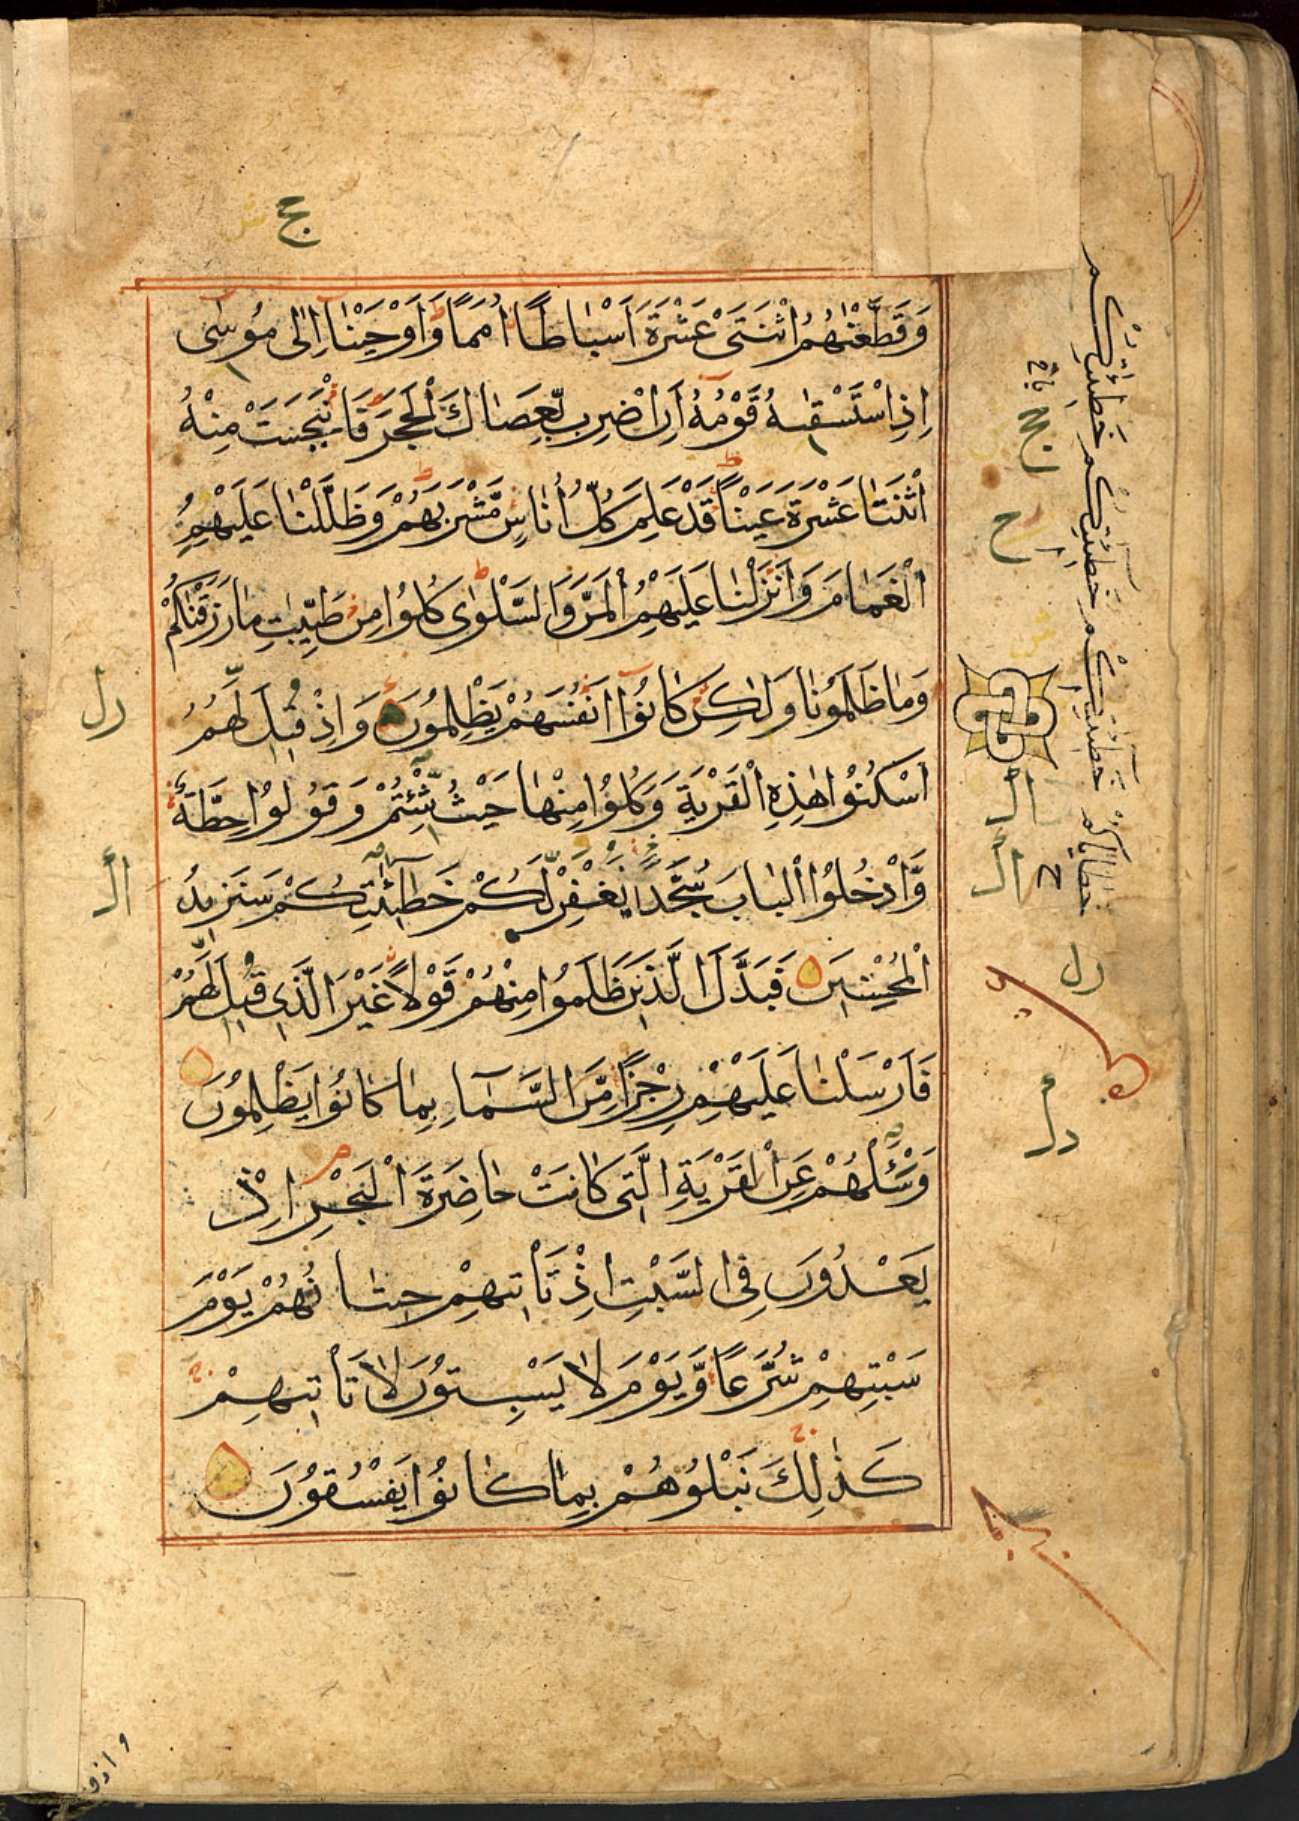 وَقَطَّعْنٰهُمُ اثْنَتَىْ عَشْرَةَ اَسْبَاطًا اُمَمًا وَّاَوْحَيْنَا اِلٰى مُوسٰى
اِذِ اسْتَسْقٰىهُ قَوْمُهُ اَنِ اضْرِبْ بِّعَصَاكَ الْحَجَرَ فَانْبَجَسَتْ مِنْهُ
اثْنَتَا عَشْرَةَ عَيْنًا قَدْ عَلِمَ كُلُّ اُنَاسٍ مَّشْرَبَهُمْ وَظَلَّلْنَا عَلَيْهِمُ
الْغَمَامَ وَاَنْزَلْنَا عَلَيْهِمُ الْمَنَّ وَالسَّلْوٰى كُلُوْا مِنْ طَيِّبٰتِ مَا رَزَقْنٰكُمْ
وَمَا ظَلَمُوْنَا وَلٰكِنْ كَانُوْا اَنْفُسَهُمْ يَظْلِمُوْنَ وَاِذْ قِيْلَ لَهُمُ
اسْكُنُوْا هٰذِهِ الْقَرْيَةَ وَكُلُوْا مِنْهَا حَيْثُ شِئْتُمْ وَقُوْلُوْا حِطَّةٌ
وَّادْخُلُوا الْبَابَ سُجَّدًا نَغْفِرْ لَّكُمْ خَطِيْٓئٰتِكُمْ سَنَزِيْدُ
الْمُحْسِنِيْنَ فَبَدَّلَ الَّذِيْنَ ظَلَمُوْا مِنْهُمْ قَوْلًا غَيْرَ الَّذِى قِيْلَ لَهُمْ
فَاَرْسَلْنَا عَلَيْهِمْ رِجْزًا مِّنَ السَّمَآءِ بِمَا كَانُوْا يَظْلِمُوْنَ
وَسْئَلْهُمْ عَنِ الْقَرْيَةِ الَّتِى كَانَتْ حَاضِرَةَ الْبَحْرِ اِذْ
يَعْدُوْنَ فِى السَّبْتِ اِذْ تَاْتِيْهِمْ حِيْتَانُهُمْ يَوْمَ
سَبْتِهِمْ شُرَّعًا وَّيَوْمَ لَا يَسْبِتُوْنَ لَا تَاْتِيْهِمْ
كَذٰلِكَ نَبْلُوْهُمْ بِمَا كَانُوْا يَفْسُقُوْنَ